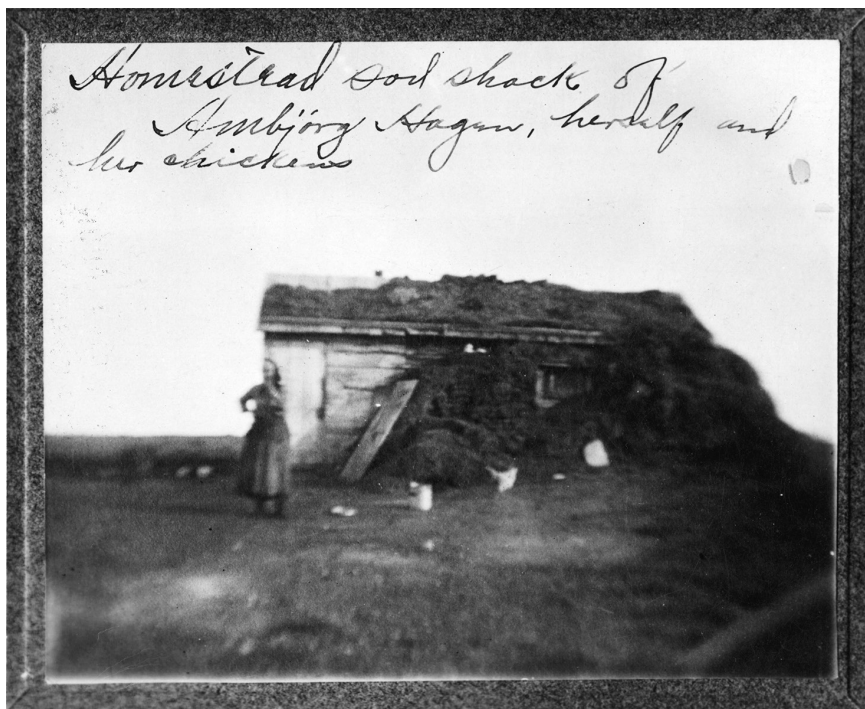 Homestead sod shack of
Ambjörg Hagen, herself and
her chickens